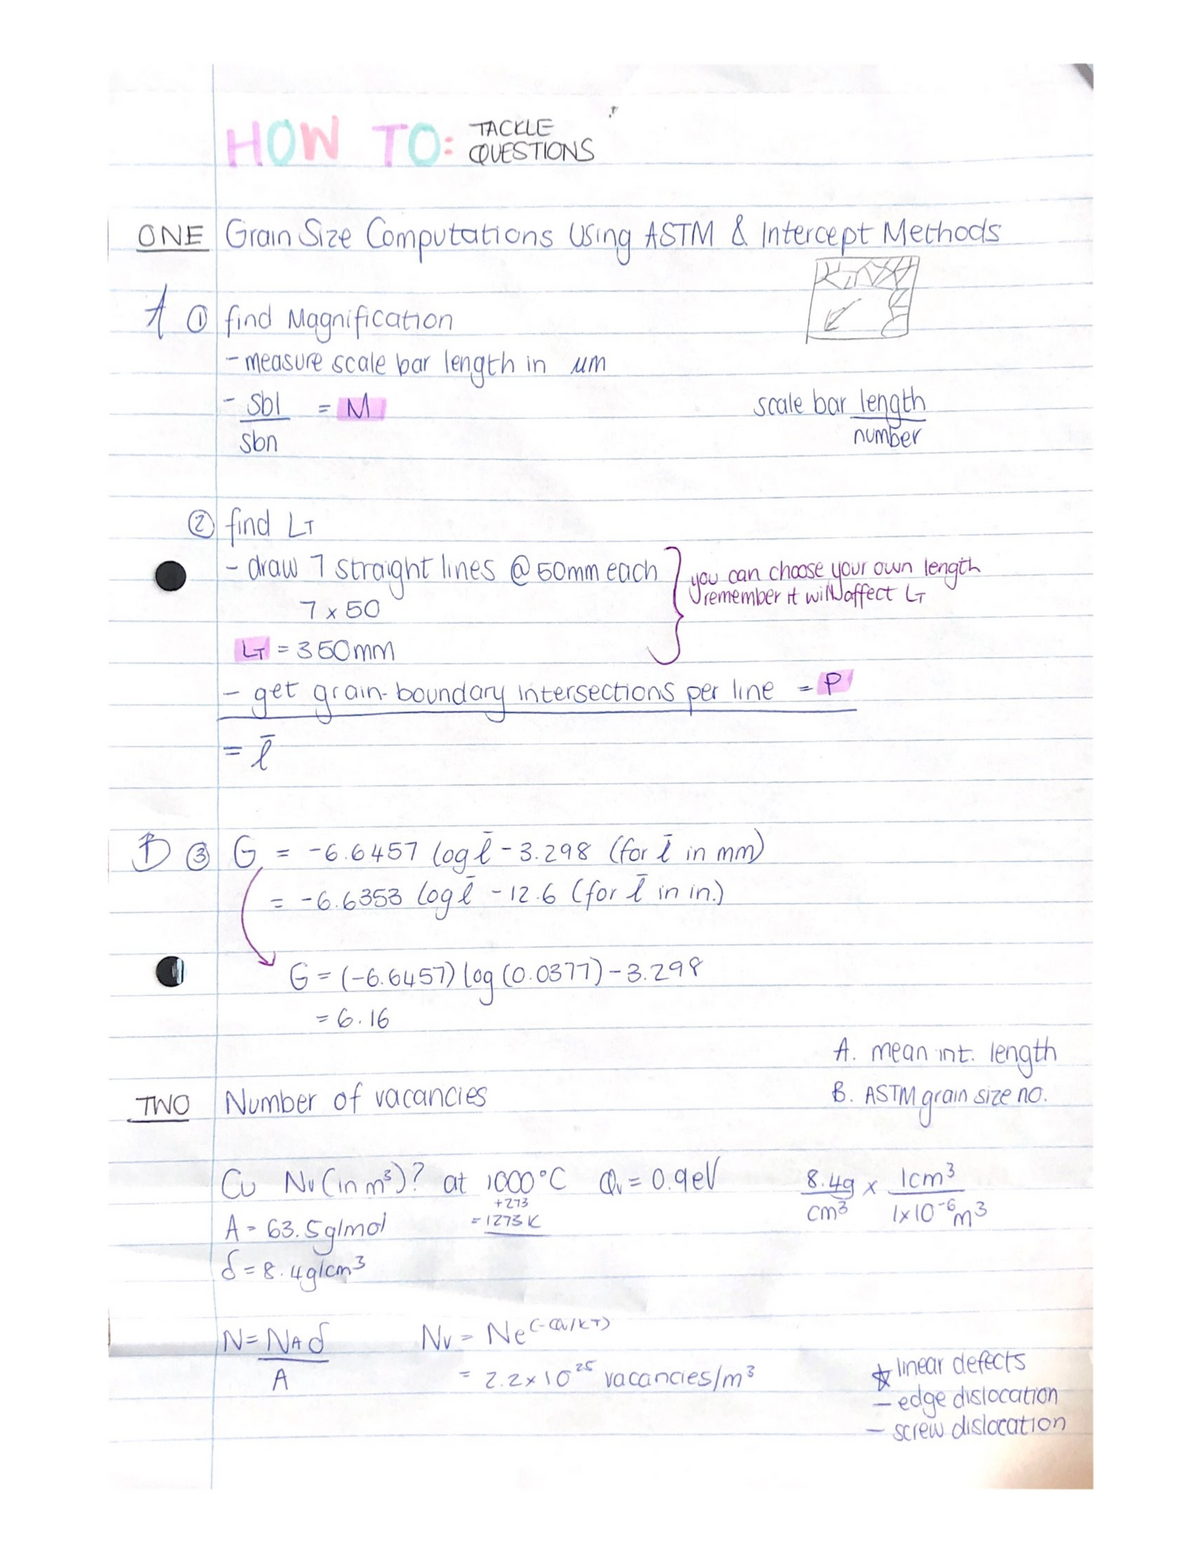 HOW TO: TACKLE
QUESTIONS
ONE Grain Size Computations Using ASTM & Intercept Methods
A ① find Magnification
- measure scale bar length in μm
- sbl / sbn = M
scale bar length / number
② find LT
- draw 7 straight lines @ 50mm each
7 x 50
LT = 350mm
you can choose your own length
remember it will affect LT
- get grain-boundary intersections per line = P
= l̄
B ③ G = -6.6457 log l̄ - 3.298 (for l̄ in mm)
= -6.6353 log l̄ - 12.6 (for l̄ in in.)
G = (-6.6457) log (0.0377) - 3.298
= 6.16
A. mean int. length
B. ASTM grain size no.
TWO Number of vacancies
Cu Nv (in m³)? at 1000°C Qv = 0.9eV
+273
= 1273K
A = 63.5g/mol
δ = 8.4g/cm³
8.4g / cm³ x 1cm³ / 1x10⁻⁶m³
N = NAδ / A
Nv = Ne^(-Qv/KT)
= 2.2 x 10²⁵ vacancies/m³
☆ linear defects
- edge dislocation
- screw dislocation